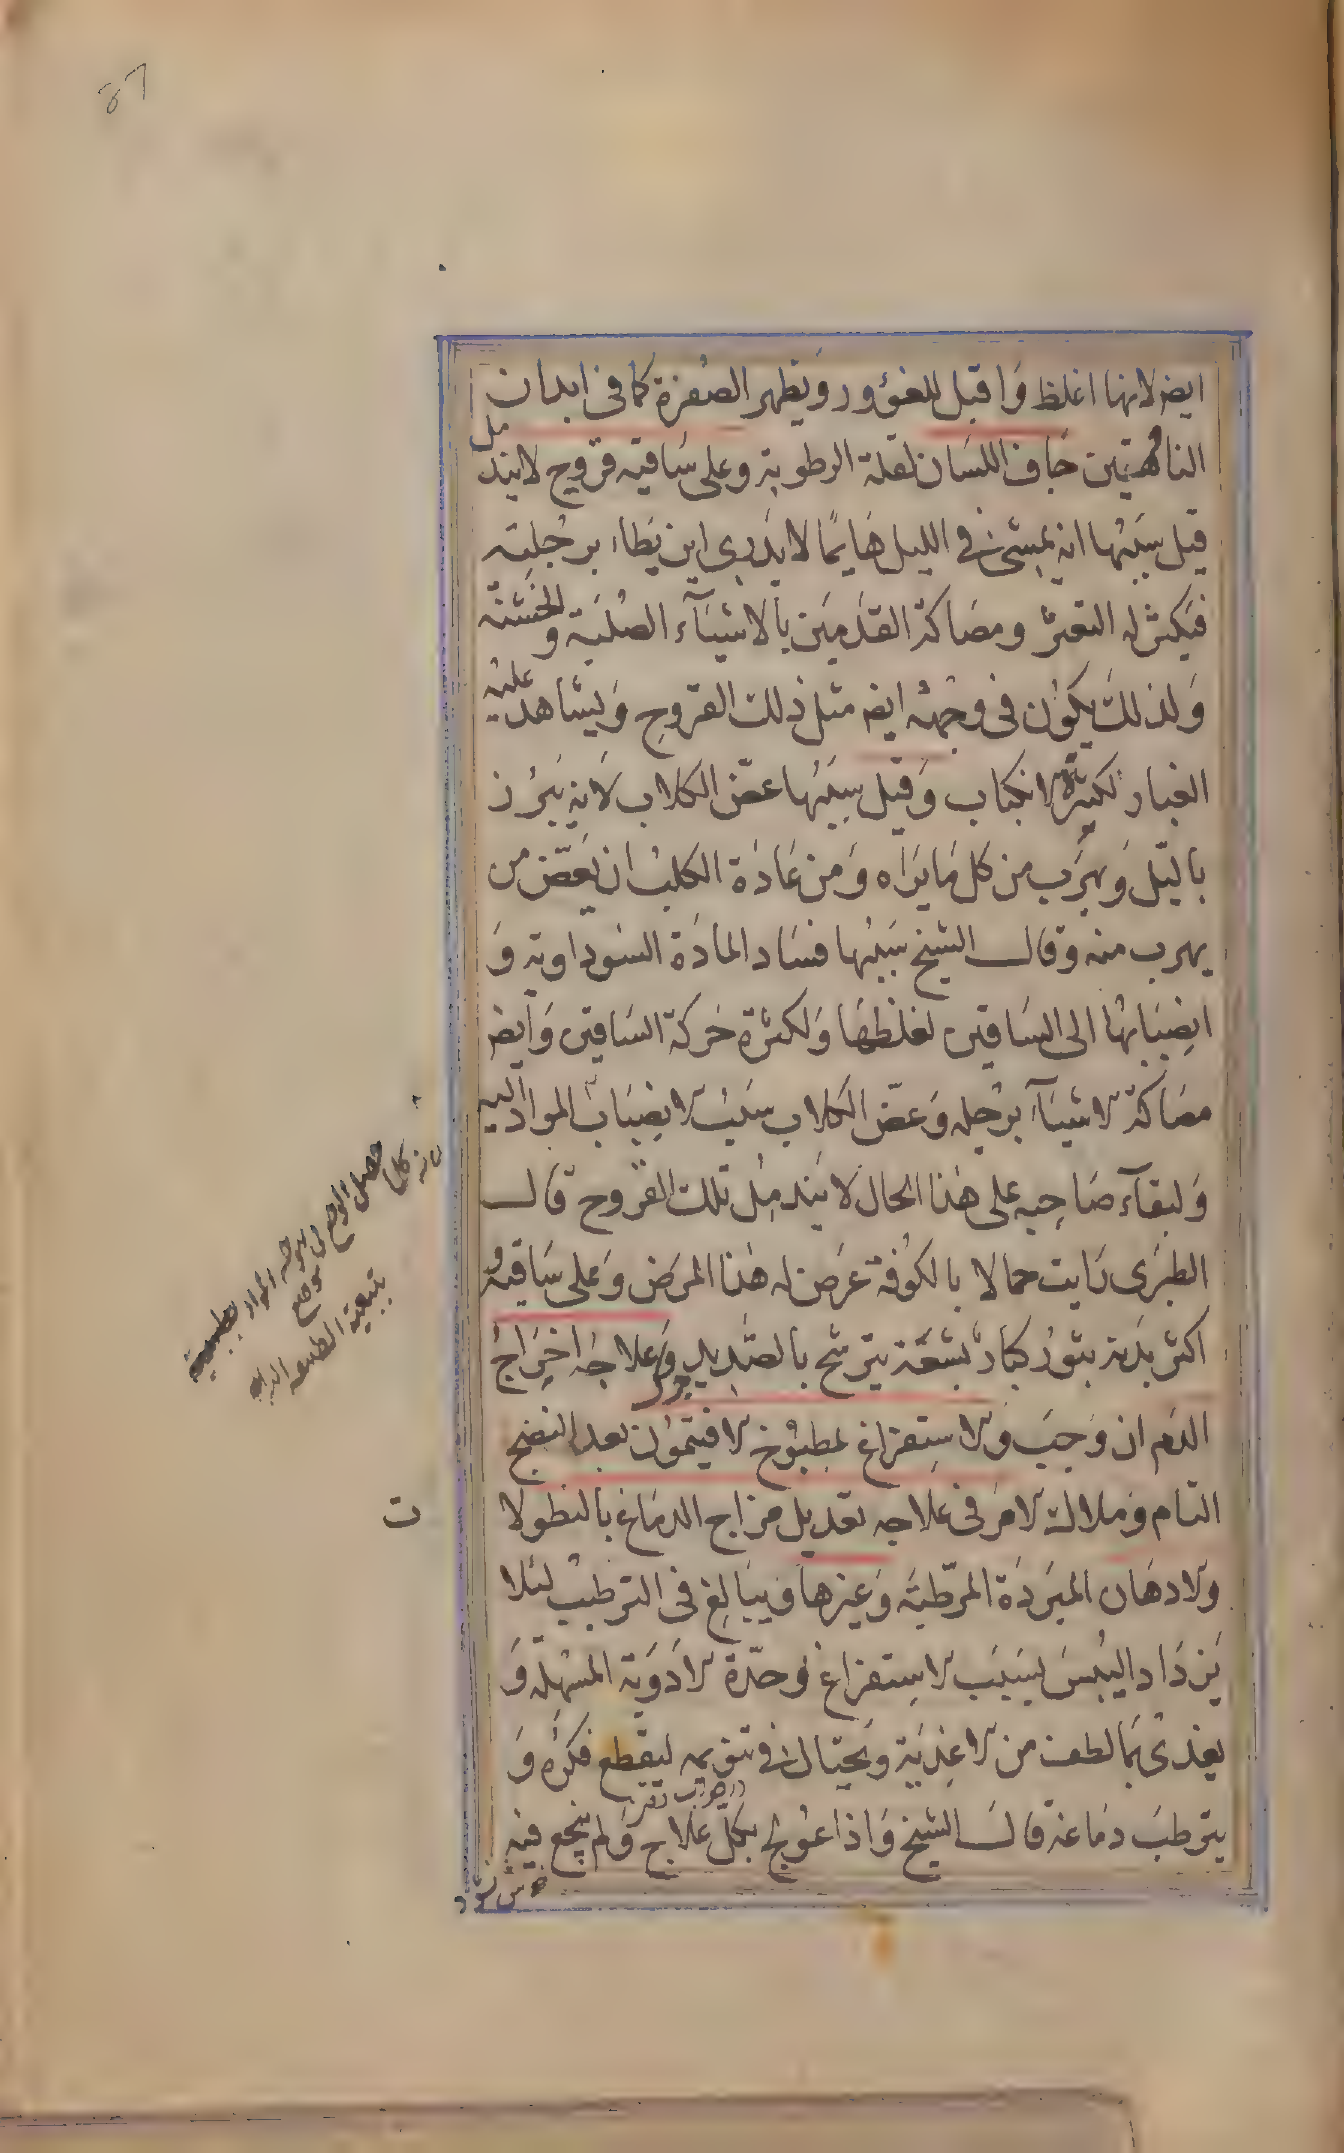 ايض لانها اغلظ وَاقبل للغؤور وَيظهر الصُفرة كما فى ابدان
الناقهين جَاف اللسَان لقلة الرطوبة وعلى سَاقيه قروح لا يندمل
قيل سَبَبُها انه يمشى فى الليل هَايمًا لا يَدرى اين يَطاء برجُليه
فيَكثر له التعثر ومصَاكة القدَمَين بالاشيَآء الصُلبَة و الخشنة
وَلذلكَ يكوُن فى وجهه ايض مثل ذلك القروح وَيشاهد عليه
الغبار لكثرة الانكباب وَقيل سَبَبُها عضّ الكلاب لَانه يَبرُز
باليّل وَيهرَب من كل مَا يَرَاه وَمن عَادَة الكلب ان يَعضّ من
يهرب منه وقال الشيخ سَبَبُها فسَاد المادَة السَوداوية وَ
انصِبَابهُا الى السَاقين لغلظهَا وَلكثرَة حَركة السَاقين وَايض
مصَاكة الاشيَآء برجله وَعضّ الكلاب سَبَبُ لانصِبَاب المواد اليه
وَلبقآء صَاحِبه على هٰذا الحال لا يَندمِلُ تلك القروح قال
الطبَرى رَايت حمالا بالكوُفة عَرَض له هٰذا المرَض وَعلى سَاقيهُ
اكثر بدَنه بثورُ كبارُ بشعَة يترشح بالصَديد وَعلاجهُ اخرَاجُ
الدَم ان وَجبَ وَالاستِفرَاغ بمطبوُخ الافيتمُون بعد النضج
التام وَملاك الامرَ فى علاجه تعديل مزاج الدمَاغ بالنطولا ت
والادهَان المبَردَة المرّطبَة وَغيرها وَيبَالغِ فى الترطيب لئلا
يَزدَاد اليُبسَ بسَبَب الاستِفرَاغ وحدّة الادَويَة المسُهلَة وَ
يغذىُ بمَا لطف من الاغذِيَة وَيحتَال فى تنويمه ليقطع فكرُه وَ
يترطبَ دمَاغهُ قالَ الشيخ وَاذا عوُلج بكلّ علاج وَلم ينجع فيه